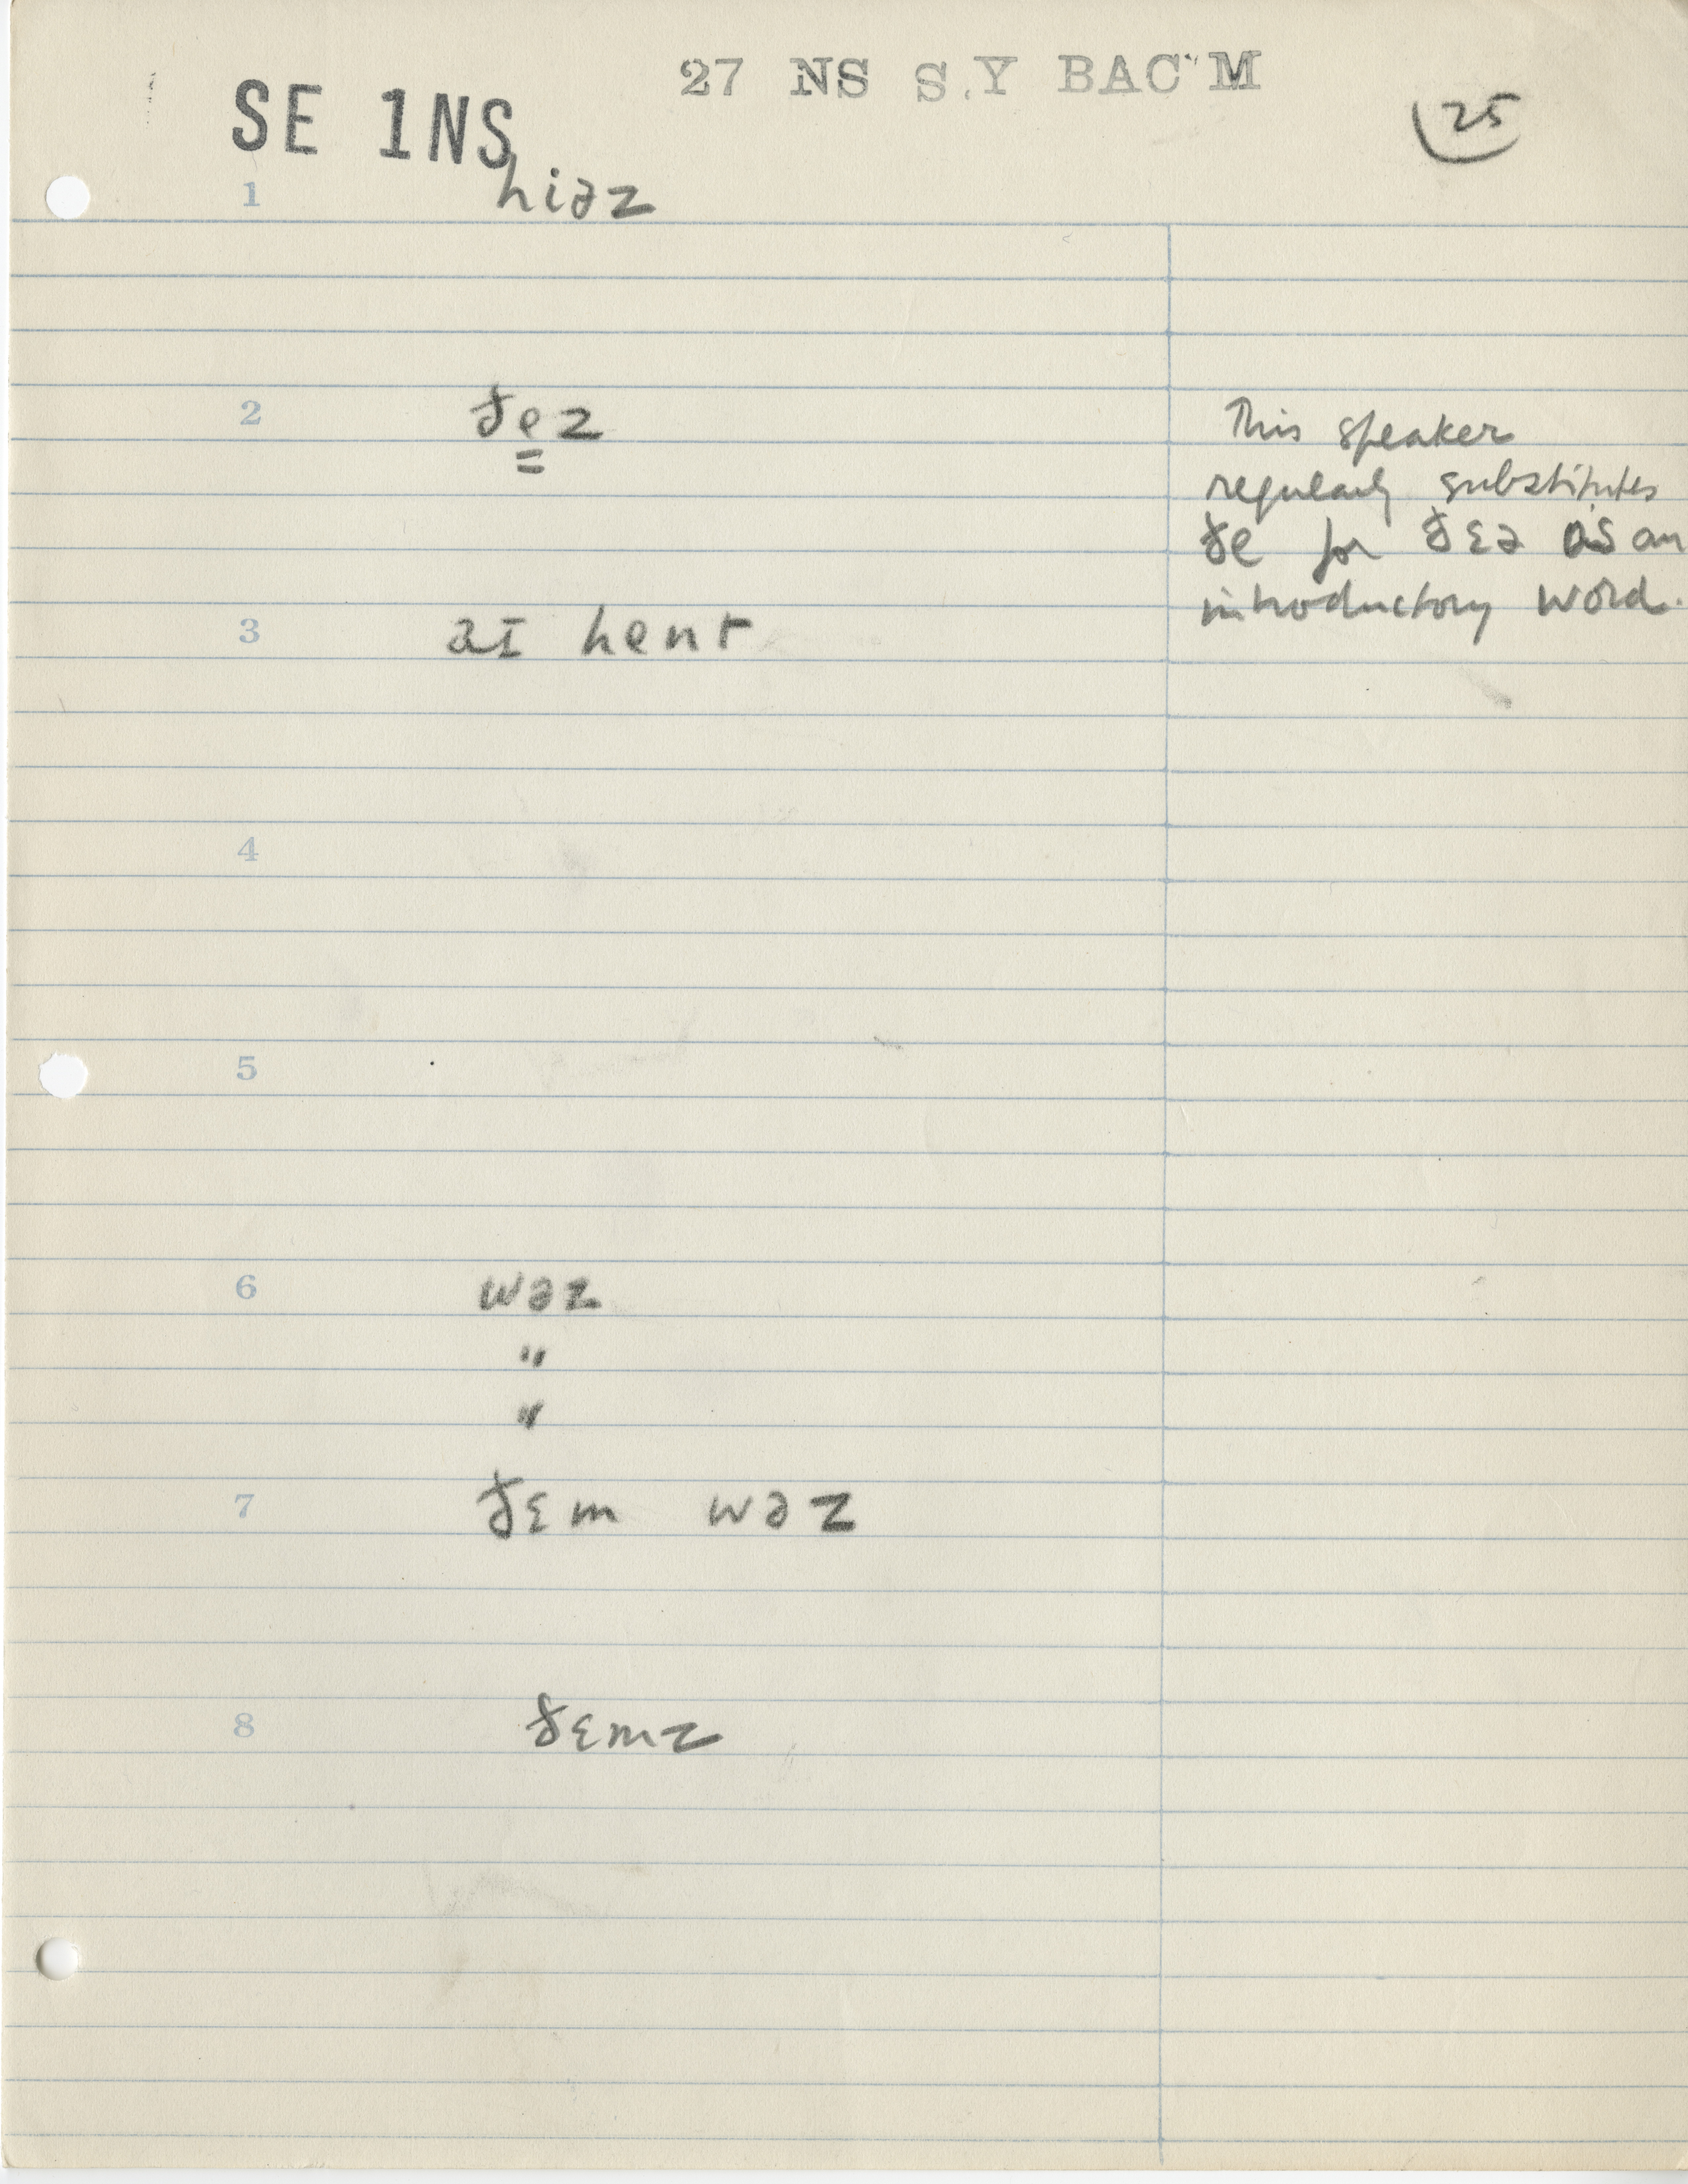 27 NS S.Y BAC'M
SE 1NS
25
1 hiəz
2 ðez
This speaker
regularly substitutes
ðe for ðɛə as an
introductory word.
3 aɪ hent
4
5
6 wəz
"
"
7 ðɛm wəz
8 ðɛmz